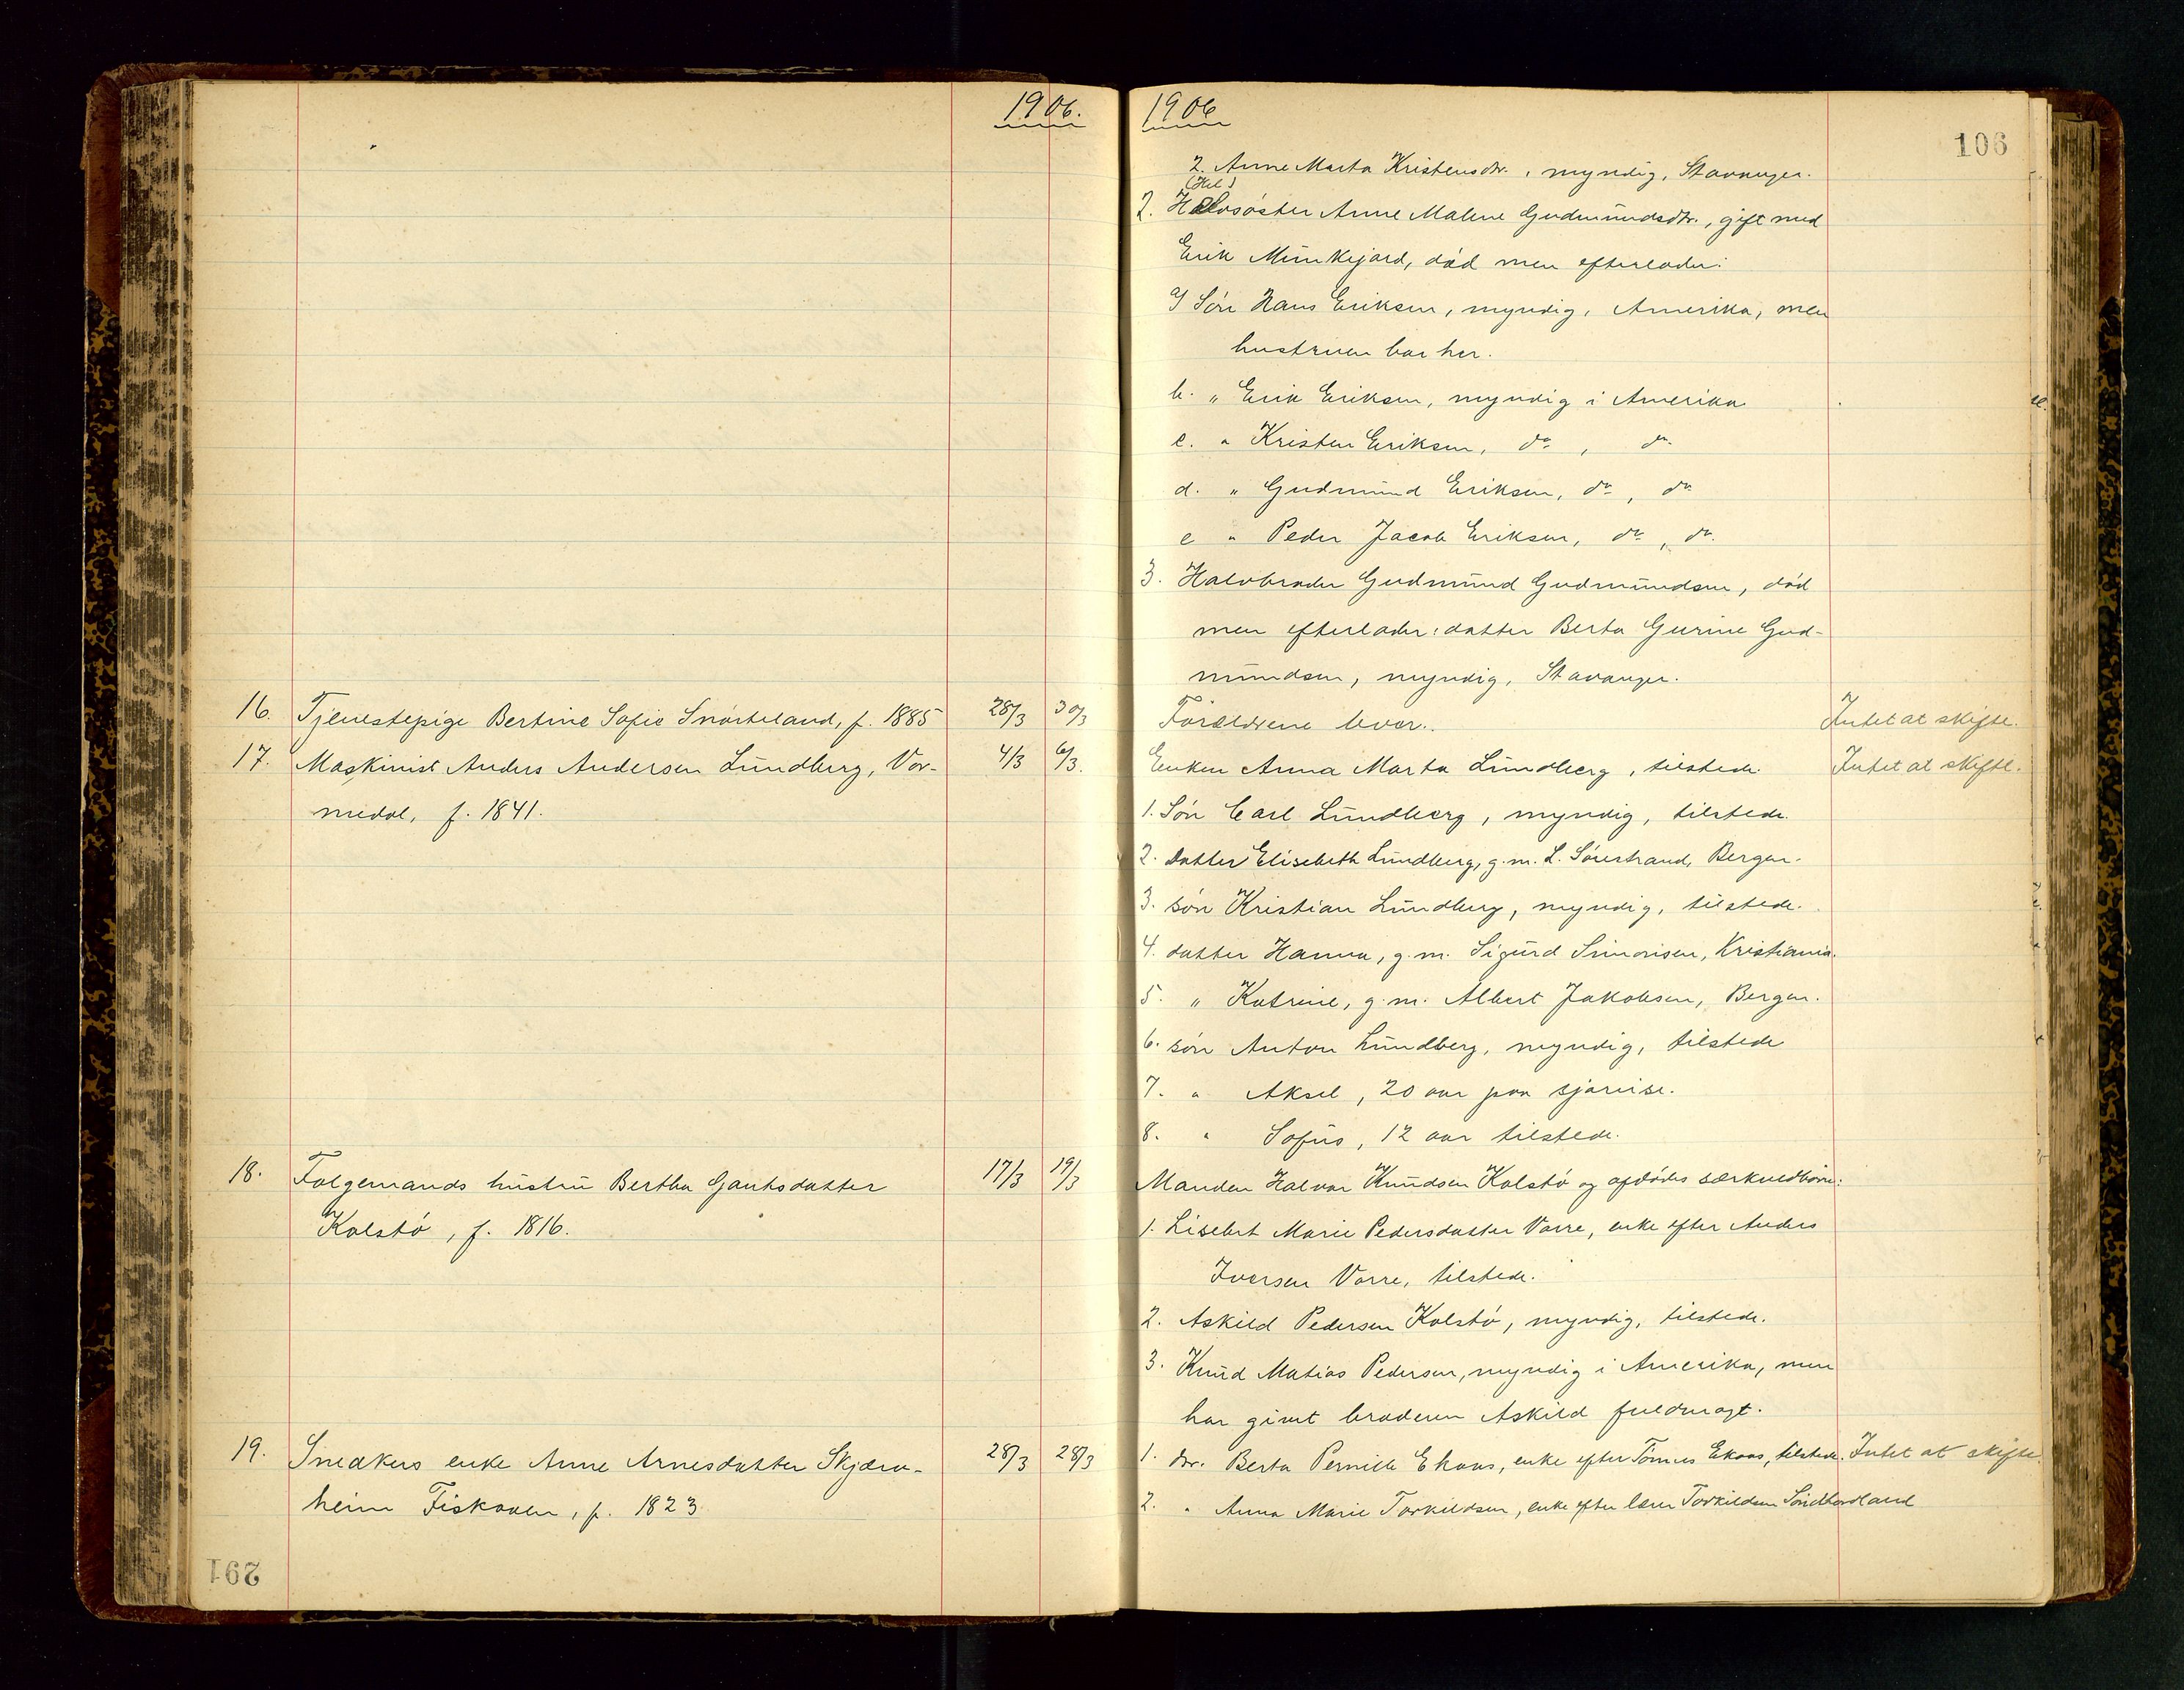 1906.
16. Tjenestepige Bertine Sofie Snørteland, f. 1885 28/3 30/3
17. Maskinist Anders Andersen Lundberg, Vor- 4/3 6/3.
medal, f. 1841.
18. Folgemands hustru Bertha Gautsdatter 17/3 19/3
Kolstø, f. 1816.
19. Snedkers enke Anne Arnesdatter Skjæra- 28/3 28/3
heim Fiskaaen, f. 1823
291
1906
106
2. Anne Marta Kristensdtr., myndig, Stavanger.
(Hel)
2. Halvsøster Anne Malene Gudmundsdtr., gift med
Erik Munkejord, død men efterlader:
a) Søn Hans Eriksen, myndig, Amerika, men
hustruen bor her.
b. " Erik Eriksen, myndig i Amerika
c. " Kristen Eriksen, do, do
d. " Gudmund Eriksen, do, do
e " Peder Jacob Eriksen, do, do.
3. Halvbroder Gudmund Gudmundsen, død
men efterlader: datter Berta Gurine Gud-
mundsen, myndig, Stavanger.
Forældrene lever. Intet at skifte.
Enken Anna Marta Lundberg, tilstede. Intet at skifte.
1. Søn Carl Lundberg, myndig, tilstede.
2. Datter Elisebeth Lundberg, g.m. L. Sørestrand, Bergen.
3. søn Kristian Lundberg, myndig, tilstede.
4. datter Hanna, g.m. Sigurd Simonsen, Kristiania.
5. " Katrine, g.m. Albert Jakobsen, Bergen.
6. søn Anton Lundberg, myndig, tilstede
7. " Aksel, 20 aar paa sjøreise.
8. " Sofus, 12 aar tilstede.
Manden Halvor Knudsen Kolstø og afdødes særkuldbørn:
1. Lisebet Marie Pedersdatter Vorre, enke efter Anders
Iversen Vorre, tilstede.
2. Askild Pedersen Kolstø, myndig, tilstede.
3. Knud Matias Pedersen, myndig i Amerika, men
har givet broderen Askild fuldmagt.
1. dtr. Berta Pernille Ekaas, enke efter Tønnes Ekaas, tilstede. Intet at skifte.
2. " Anna Marie Torkildsen, enke efter lærer Torkildsen Søndhordland